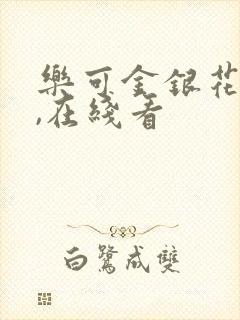 樂可金銀花
,在綫看
白鷺成雙